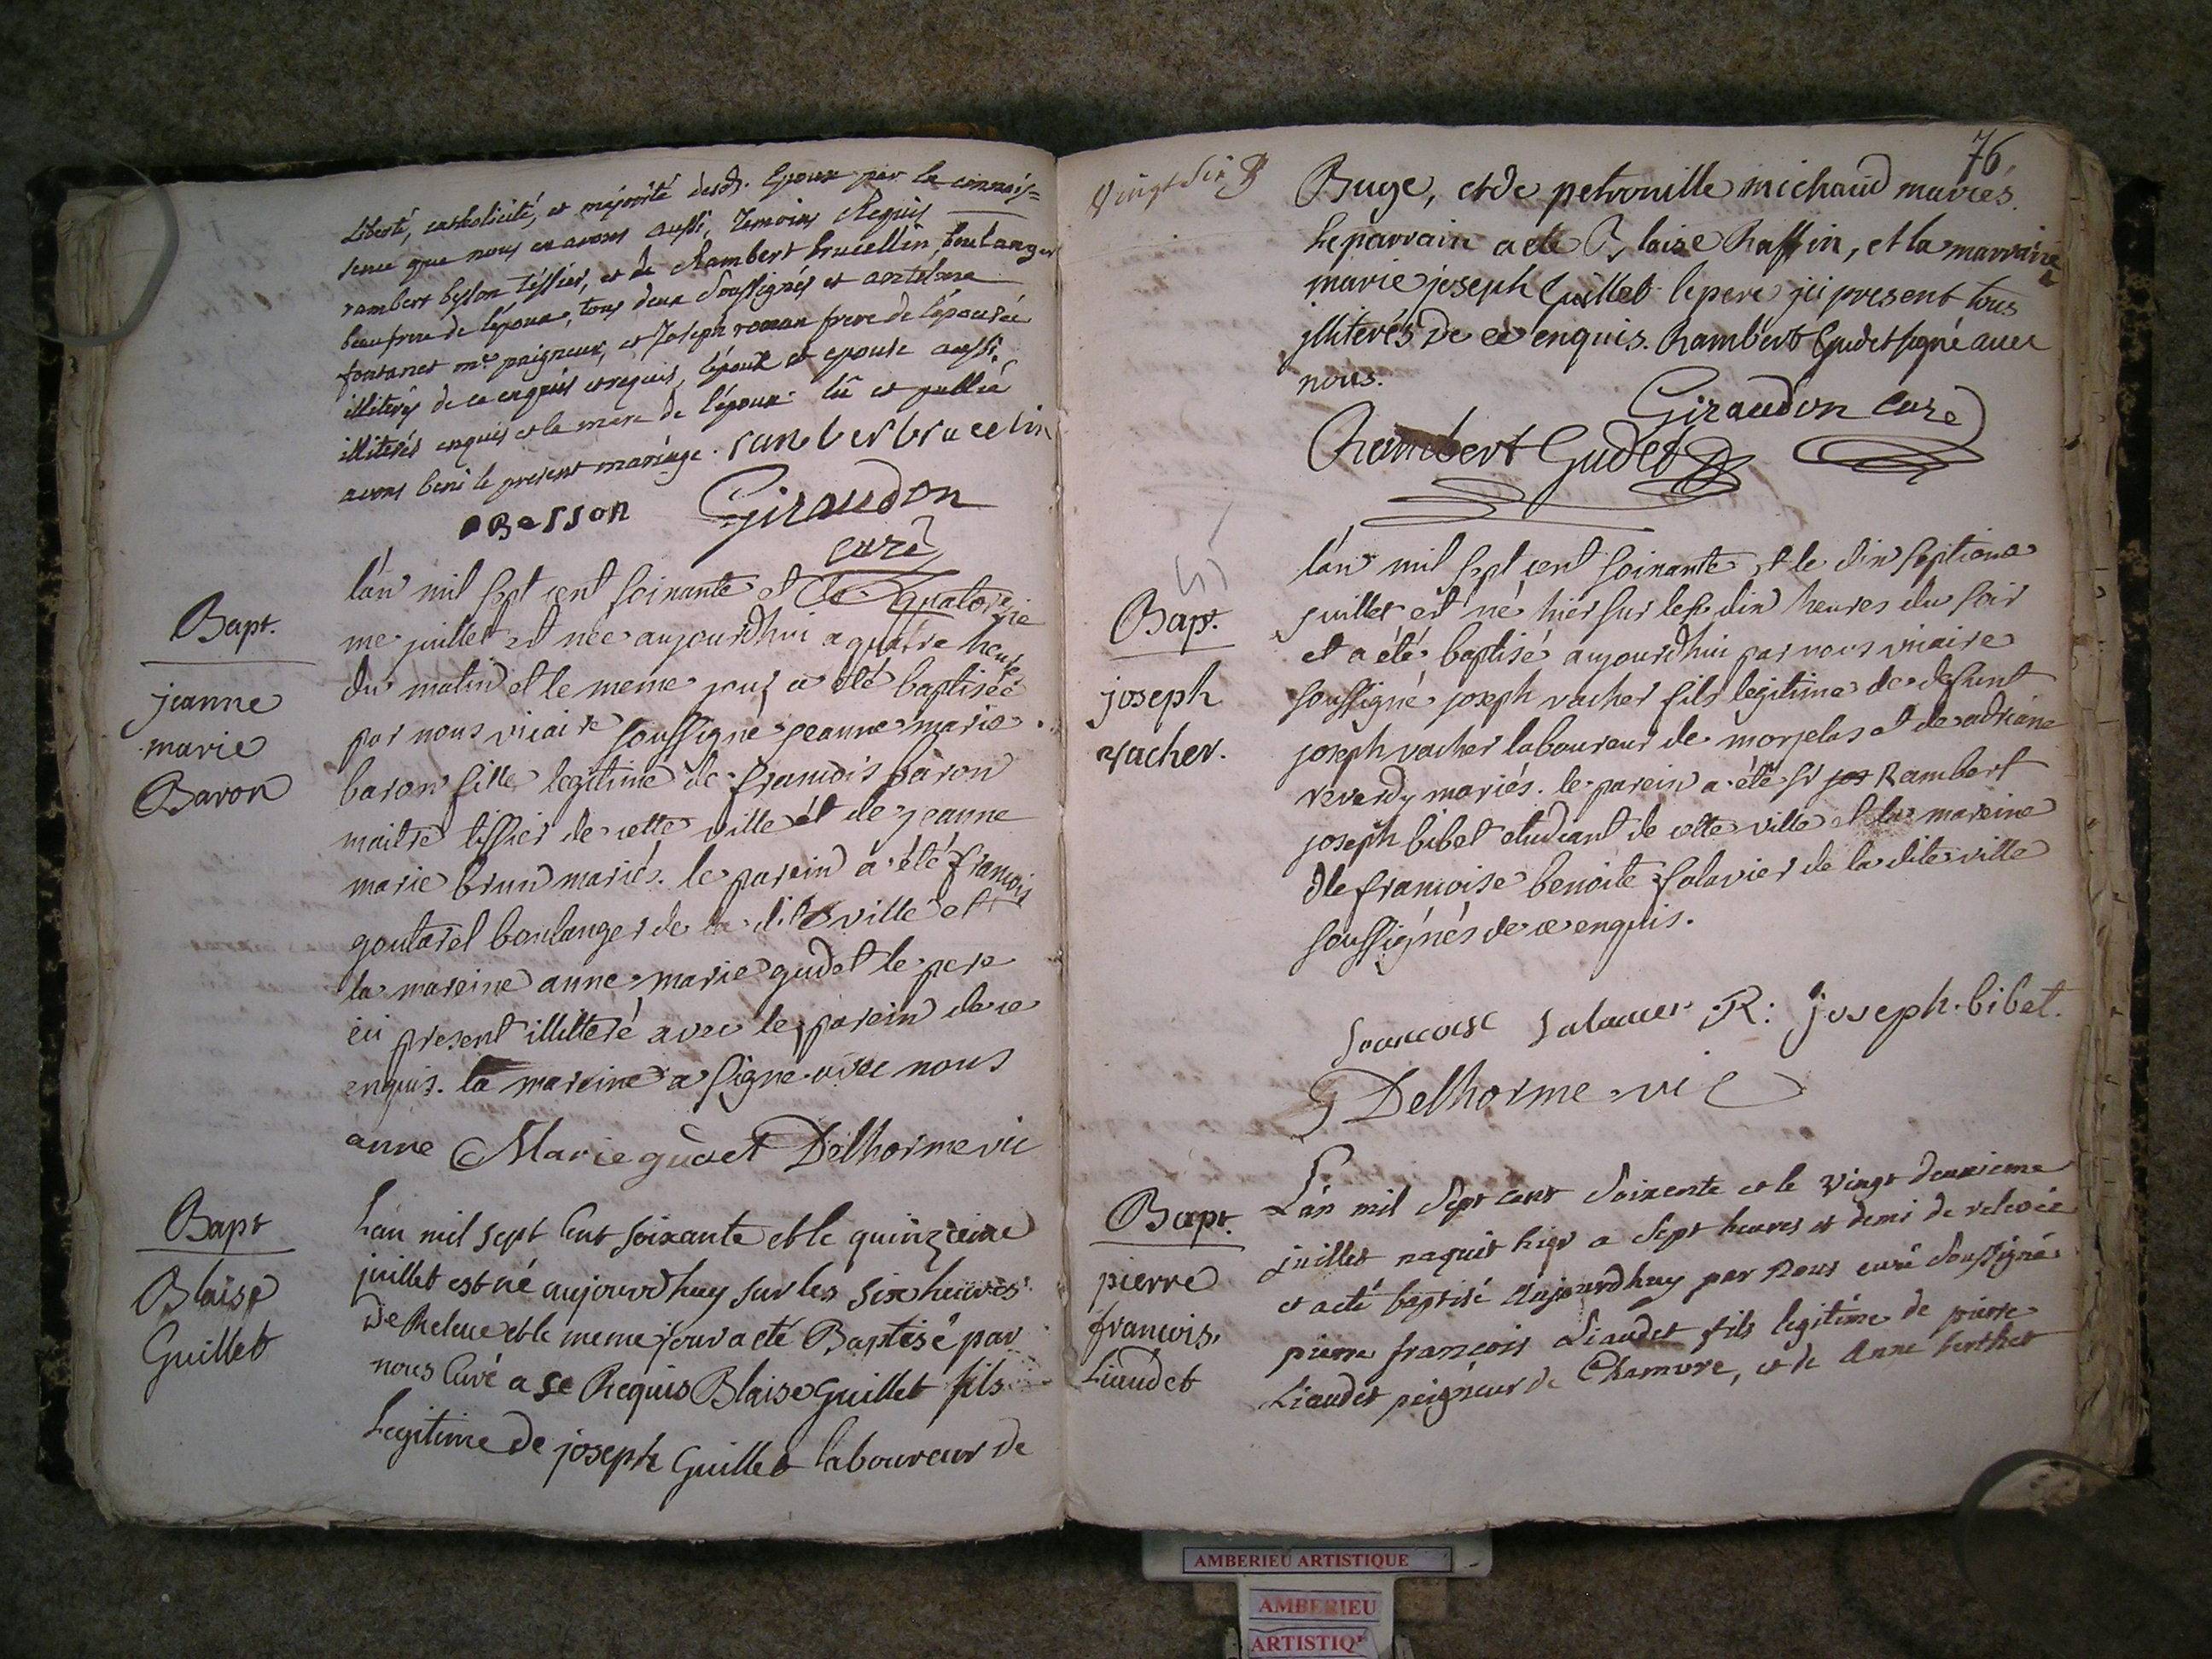 Liberté, catholicité, et majorité desd. Epoux par la connois=
sence que nous en avons aussi, Temoins Requis
rambert besson tissier, et de Rambert brucellin boulanger
beaufrere de l'époux, tous deux soussignés et antelme
fontanet me peigneur, et Joseph roman frere de l'épousée
illiterés de ce enquis et requis, l'époux et epouse aussi
illiterés enquis et la mere de l'époux. lû et publié
avons beni le present mariage. ranberbrucelin
Besson Giraudon
curé
Bapt.
jeanne
marie
Baron
l'an mil sept cent soixante et le quatorzie
me juillet est née aujourdhui a quatre heures
du matin et le meme jour a été baptisée
par nous vicaire soussigné jeanne marie
baron fille legitime de francois baron
maitre tissier de cette ville et de jeanne
marie brun mariés. le parein a été francois
goutarel boulanger de la dite ville et
la mareine anne marie gudet le pere
ici present illitteré avec le parein de ce
enquis. la mareine a signe avec nous
anne Marie gudet Delhorme vic
Bapt
Blaise
Guillet
L'an mil sept Cent soixante et le quinzieme
juillet est né aujourdhuy sur les six heures
De Relevé et le meme jour a eté Baptisé par
nous Curé a se Requis Blaise Guillet fils
Legitime De joseph Guillet laboureur de
76
Vingt six
Buge, et de petronille michaud mariés.
Le parrain a eté Blaise Raffin, et la marraine
marie joseph Guillet le pere ici present tous
jlliterés de ce enquis. Rambert Gudet signé avec
nous.
Giraudon curé
Rambert Gudet
Bap.
joseph
vacher.
l'an mil sept cent soixante et le dix septieme
juillet est né hier sur les dix heures du soir
et a été baptisé aujourdhui par nous vicaire
soussigné joseph vacher fils legitime de defunt
joseph vacher laboureur de morjelas et de adriane
reverdy mariés. le parein a été sr jos Rambert
joseph bibet etudiant de cette ville et la mareine
dlle francoise benoite salavier de la dite ville
soussignés de ce enquis.
francoise salavier R: joseph. bibet.
Delhorme vic
Bapt.
pierre
francois
Liaudet
L'an mil sept cent soixente et le vingt deuxieme
juillet naquit hier a sept heures et demi de relevée
et a eté baptisé Aujourdhuy par nous curé soussigné
pierre françois Liaudet fils legitime de pierre
Liaudet peigneur de Chanvre, et de Anne berthet
AMBERIEU ARTISTIQUE
AMBERIEU
ARTISTIQ